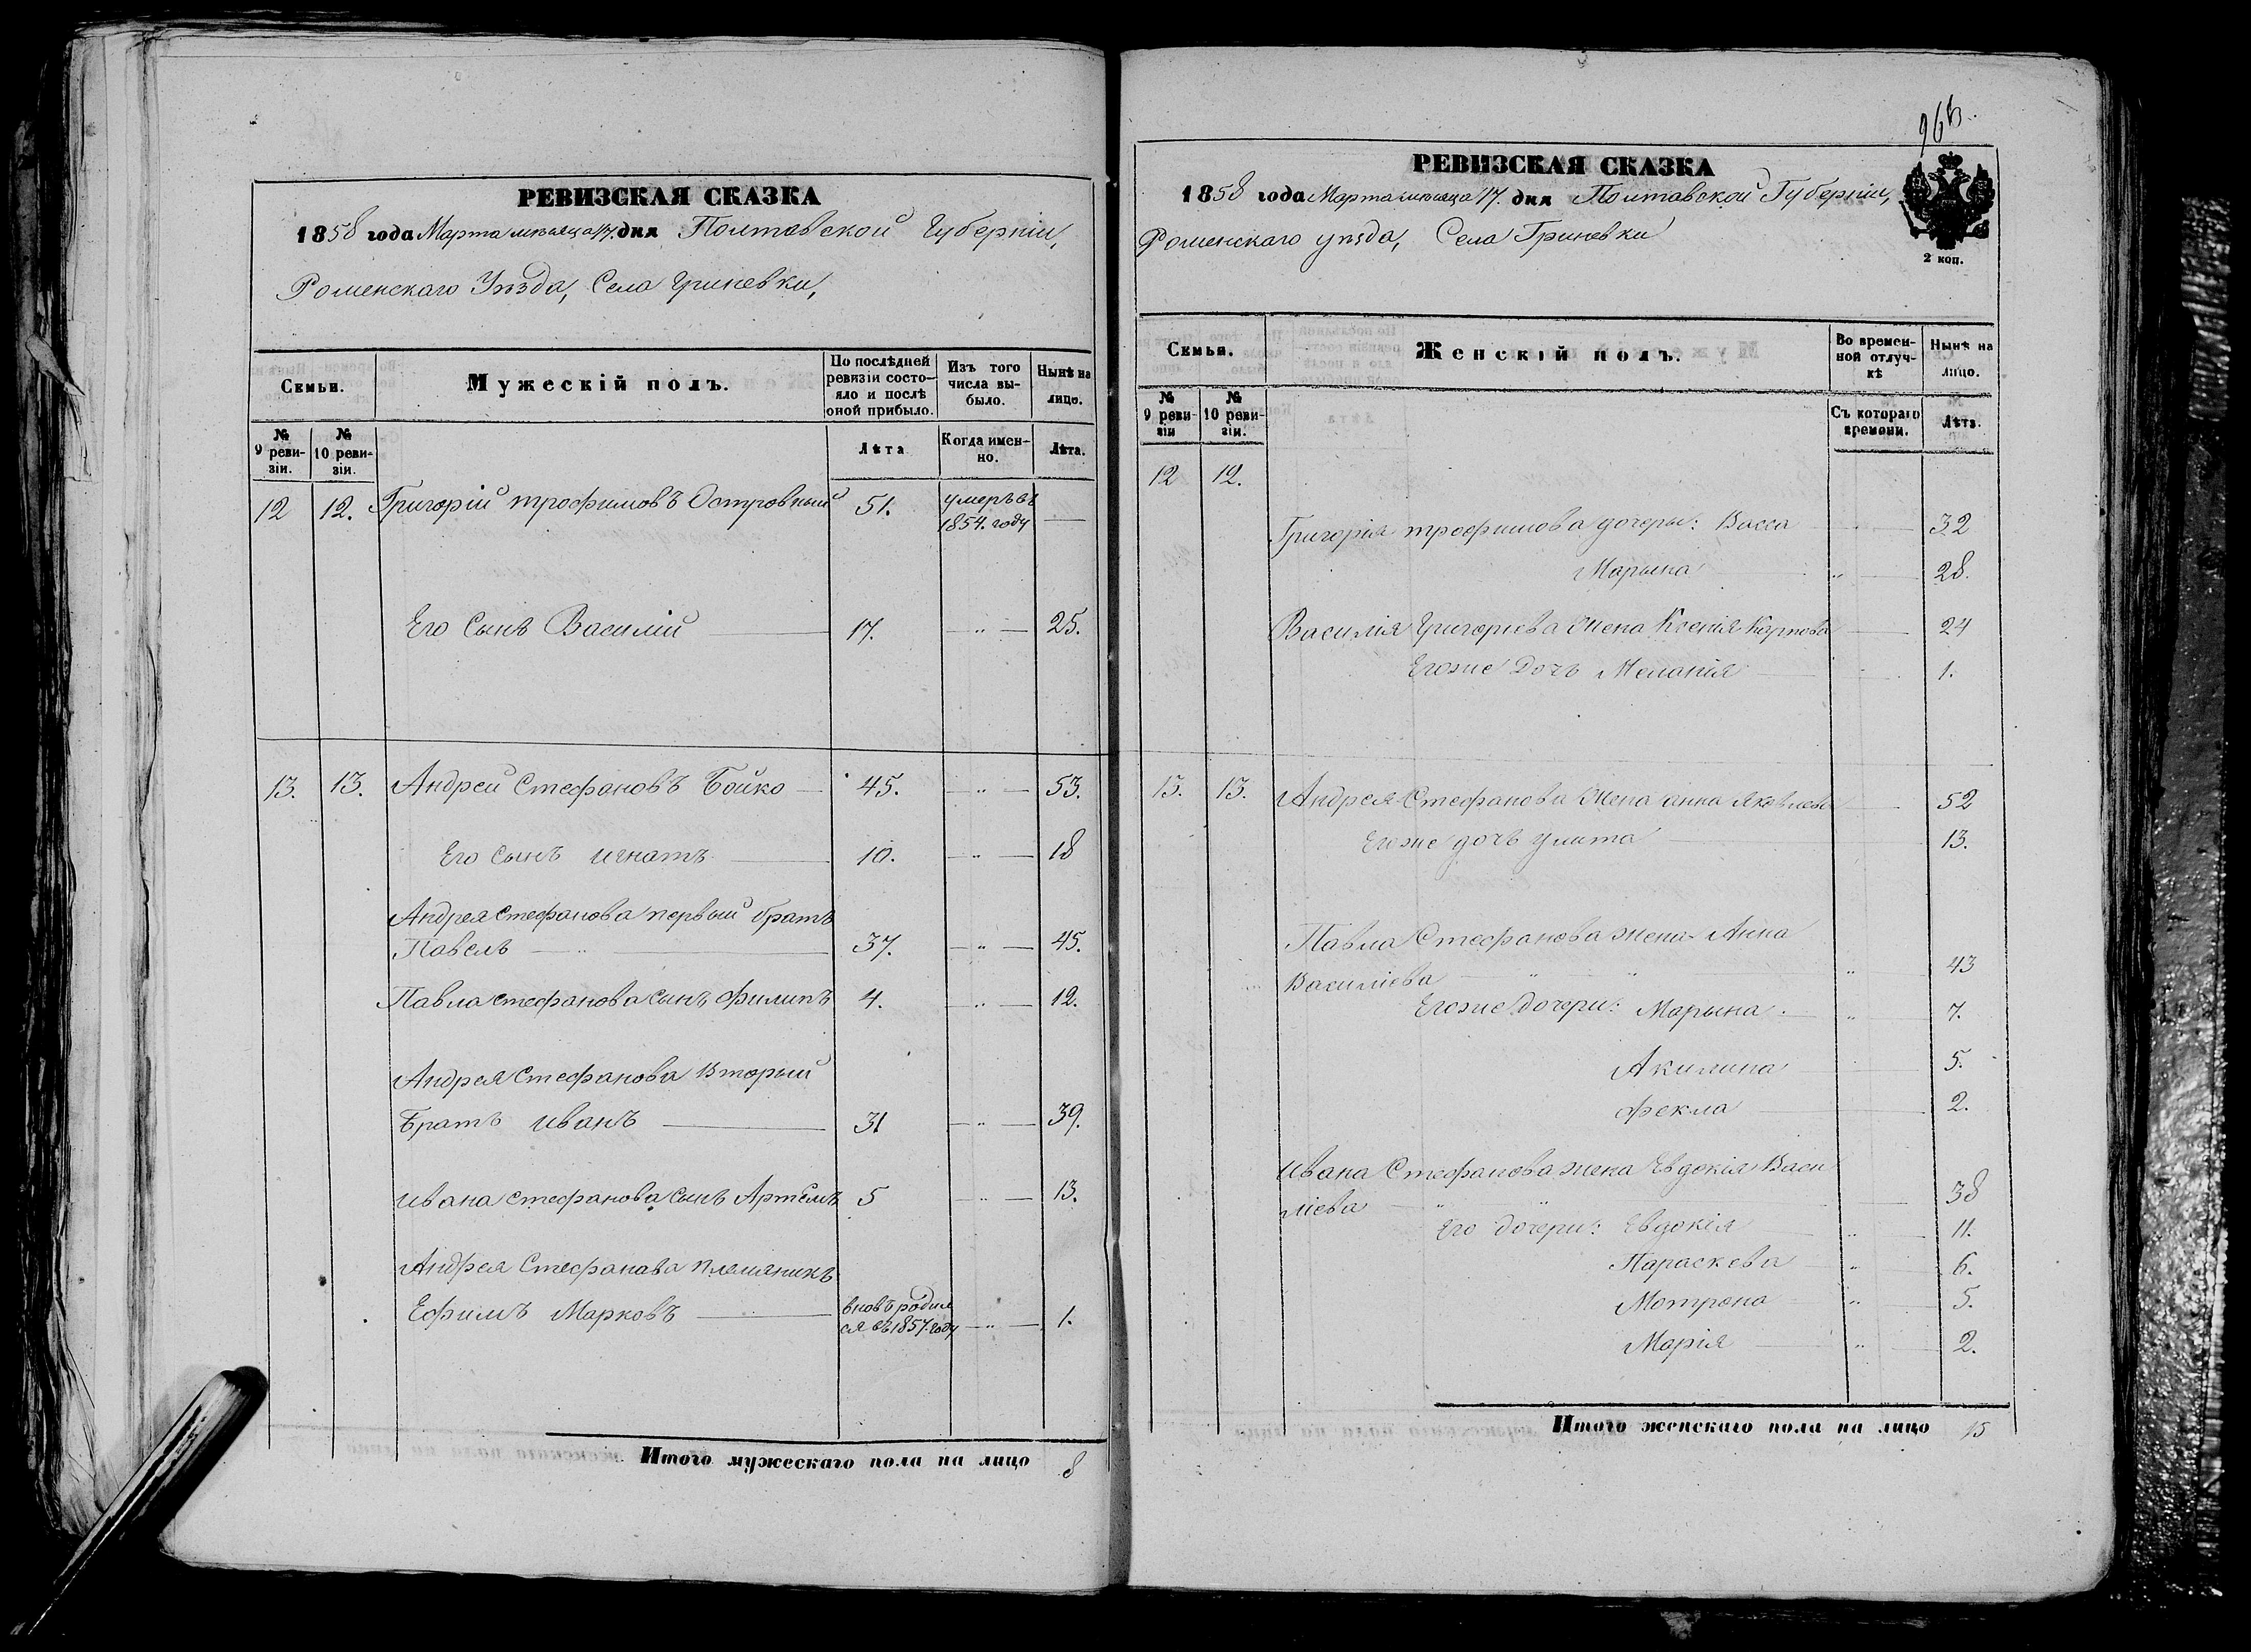 РЕВИЗСКАЯ СКАЗКА
1858 года Марта мѣсяца 17. дня Полтавской Губерніи,
Роменскаго Уѣзда, Села Гриневки,
Семьи.
Мужескій полъ.
По послѣдней ревизіи состояло и послѣ оной прибыло.
Изъ того числа выбыло.
Нынѣ на лицо.
№ 9 ревизіи.
№ 10 ревизіи.
Лѣта
Когда именно.
Лѣта.
12 12. Григорій трофимовъ Островный 51. умеръ въ 1854. году —
Его Сынъ Василій 17. — „ — 25.
13. 13. Андрей Стефановъ Бойко — 45. — „ — 53.
Его сынъ игнатъ 10. — „ — 18
Андрея стефанова первый братъ
Павелъ — „ — 37. — „ — 45.
Павла стефанова сынъ филипъ 4. — „ — 12.
Андрея Стефанова Вторый
Братъ иванъ — 31 — „ — 39.
ивана стефанова сынъ Артемъ 5 — „ — 13.
Андрея Стефанава племяникъ
Ефимъ Марковъ — вновъ родился въ 1857. году — „ — 1.
Итого мужескаго пола на лицо 8
РЕВИЗСКАЯ СКАЗКА
1858 года Марта мѣсяца 17. дня Полтавской Губерніи,
Роменскаго уѣзда, Села Гриневки
2 коп.
Семьи.
Женскій полъ.
Во временной отлучкѣ
Нынѣ на лицо.
№ 9 ревизіи
№ 10 ревизіи.
Съ котораго времени.
Лѣта.
12 12.
Григорія трофимова дочеры: Васса 32
Марына „ 28.
Василія Григоріева жена Ксенія Карпова 24
Егоже Дочь Меланія 1.
13. 13. Андрея Стефанова жена анна Яковлева 52
Егоже дочь улита 13.
Павла Стефанова жена Анна
Василіева „ „ „ 43
Егоже дочери: Марына. „ 7.
Акилина 5.
Фекла 2.
ивана Стефанова жена Евдокія Васи
ліева „ „ 38
Его дочери: Евдокія „ 11.
Параскева „ 6.
Мотрона „ 5.
Марія „ 2.
Итого женскаго пола на лицо 15